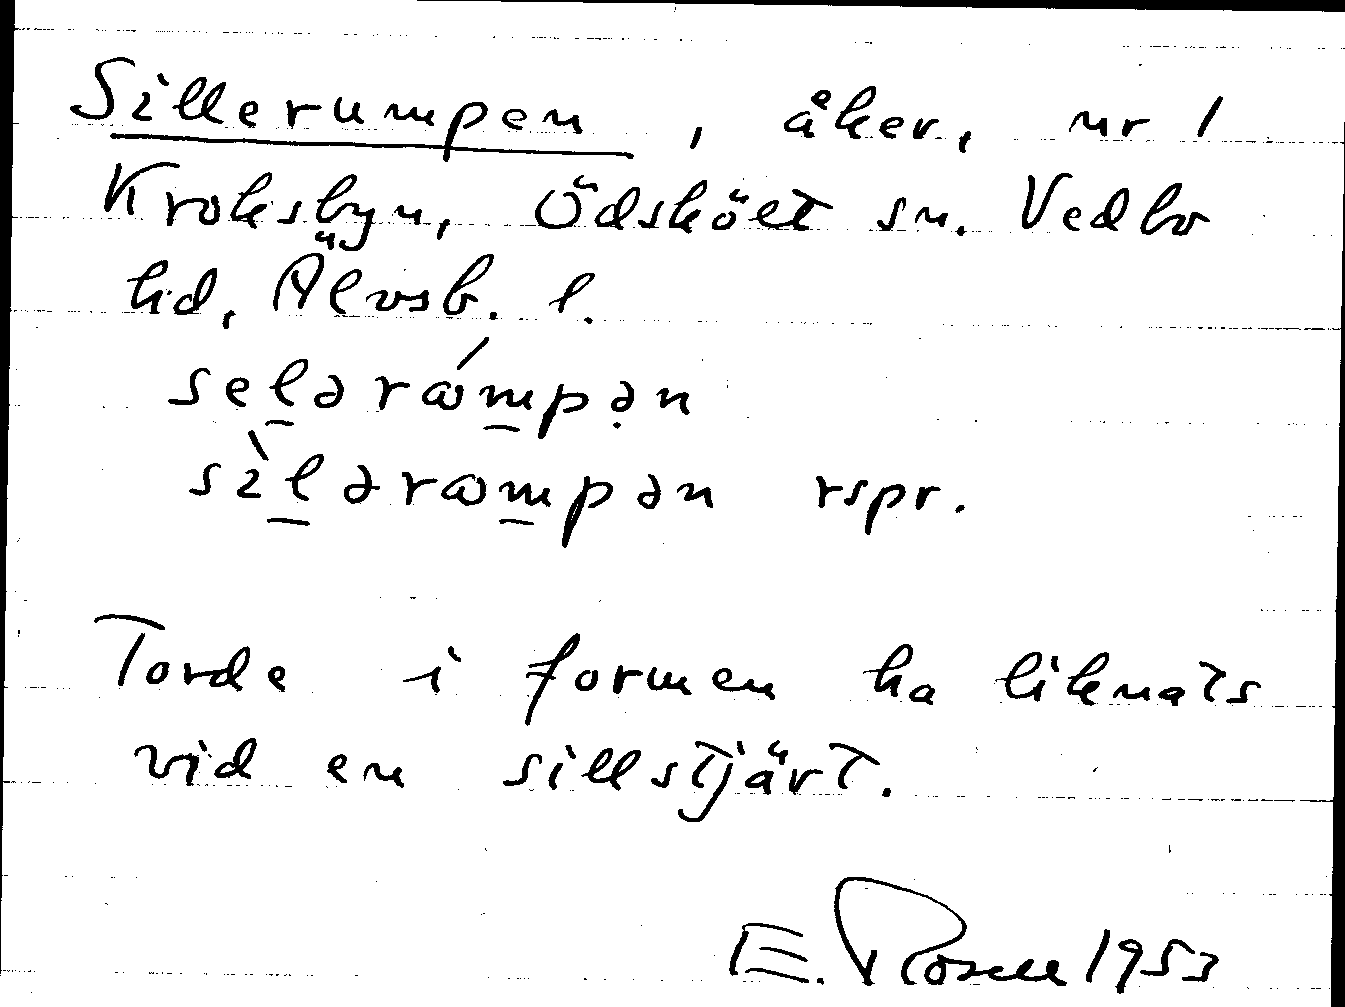 Sillerumpen, åker, nr 1
Kroksbyn, Ödskölt sn. Vedbo
hd, Älvsb. l.
selərɷ́mpən
sìlərɷmpən rspr.
Torde i formen ha liknats
vid en sillstjärt.
E. Rosell 1953